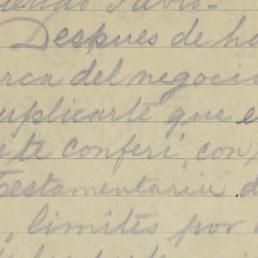 Despues de ha
rca del negocio
uplicarte que e
te conferi, con
Testamentaria d
, limites por